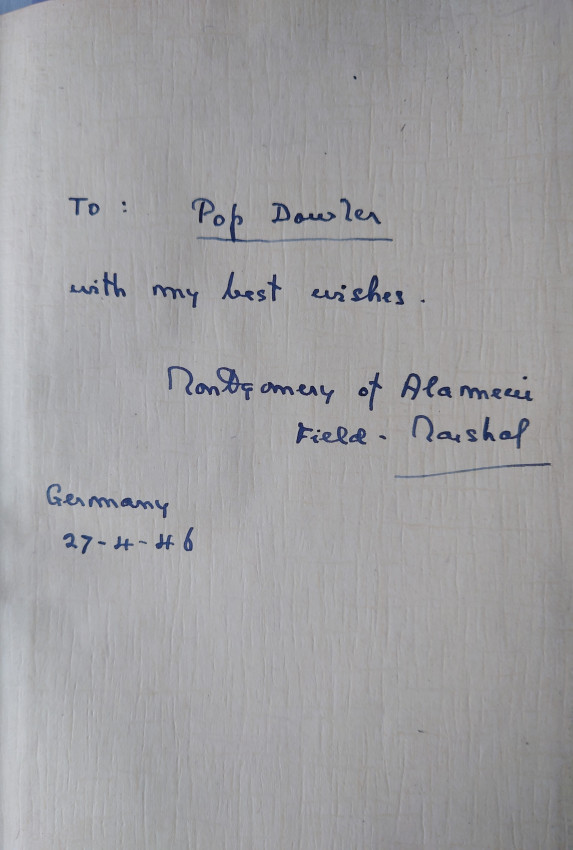 To : Pop Dowler
with my best wishes.
Montgomery of Alamein
Field-Marshal
Germany
27-4-46